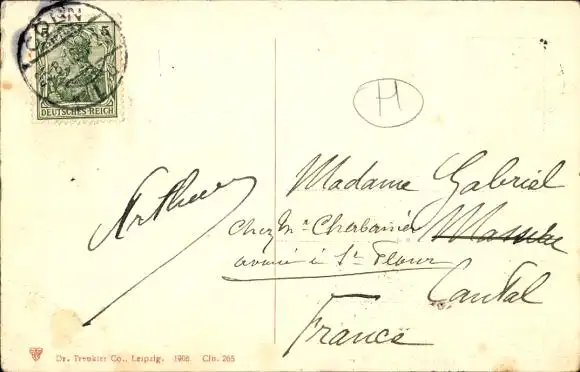 CÖLN
5 5
DEUTSCHES REICH
H
Arthur
Madame Gabriel
Chez Mr Cherbonnier
avoué à St Flour
Cantal
France
Dr. Trenkler Co., Leipzig. 1906. Cln. 265